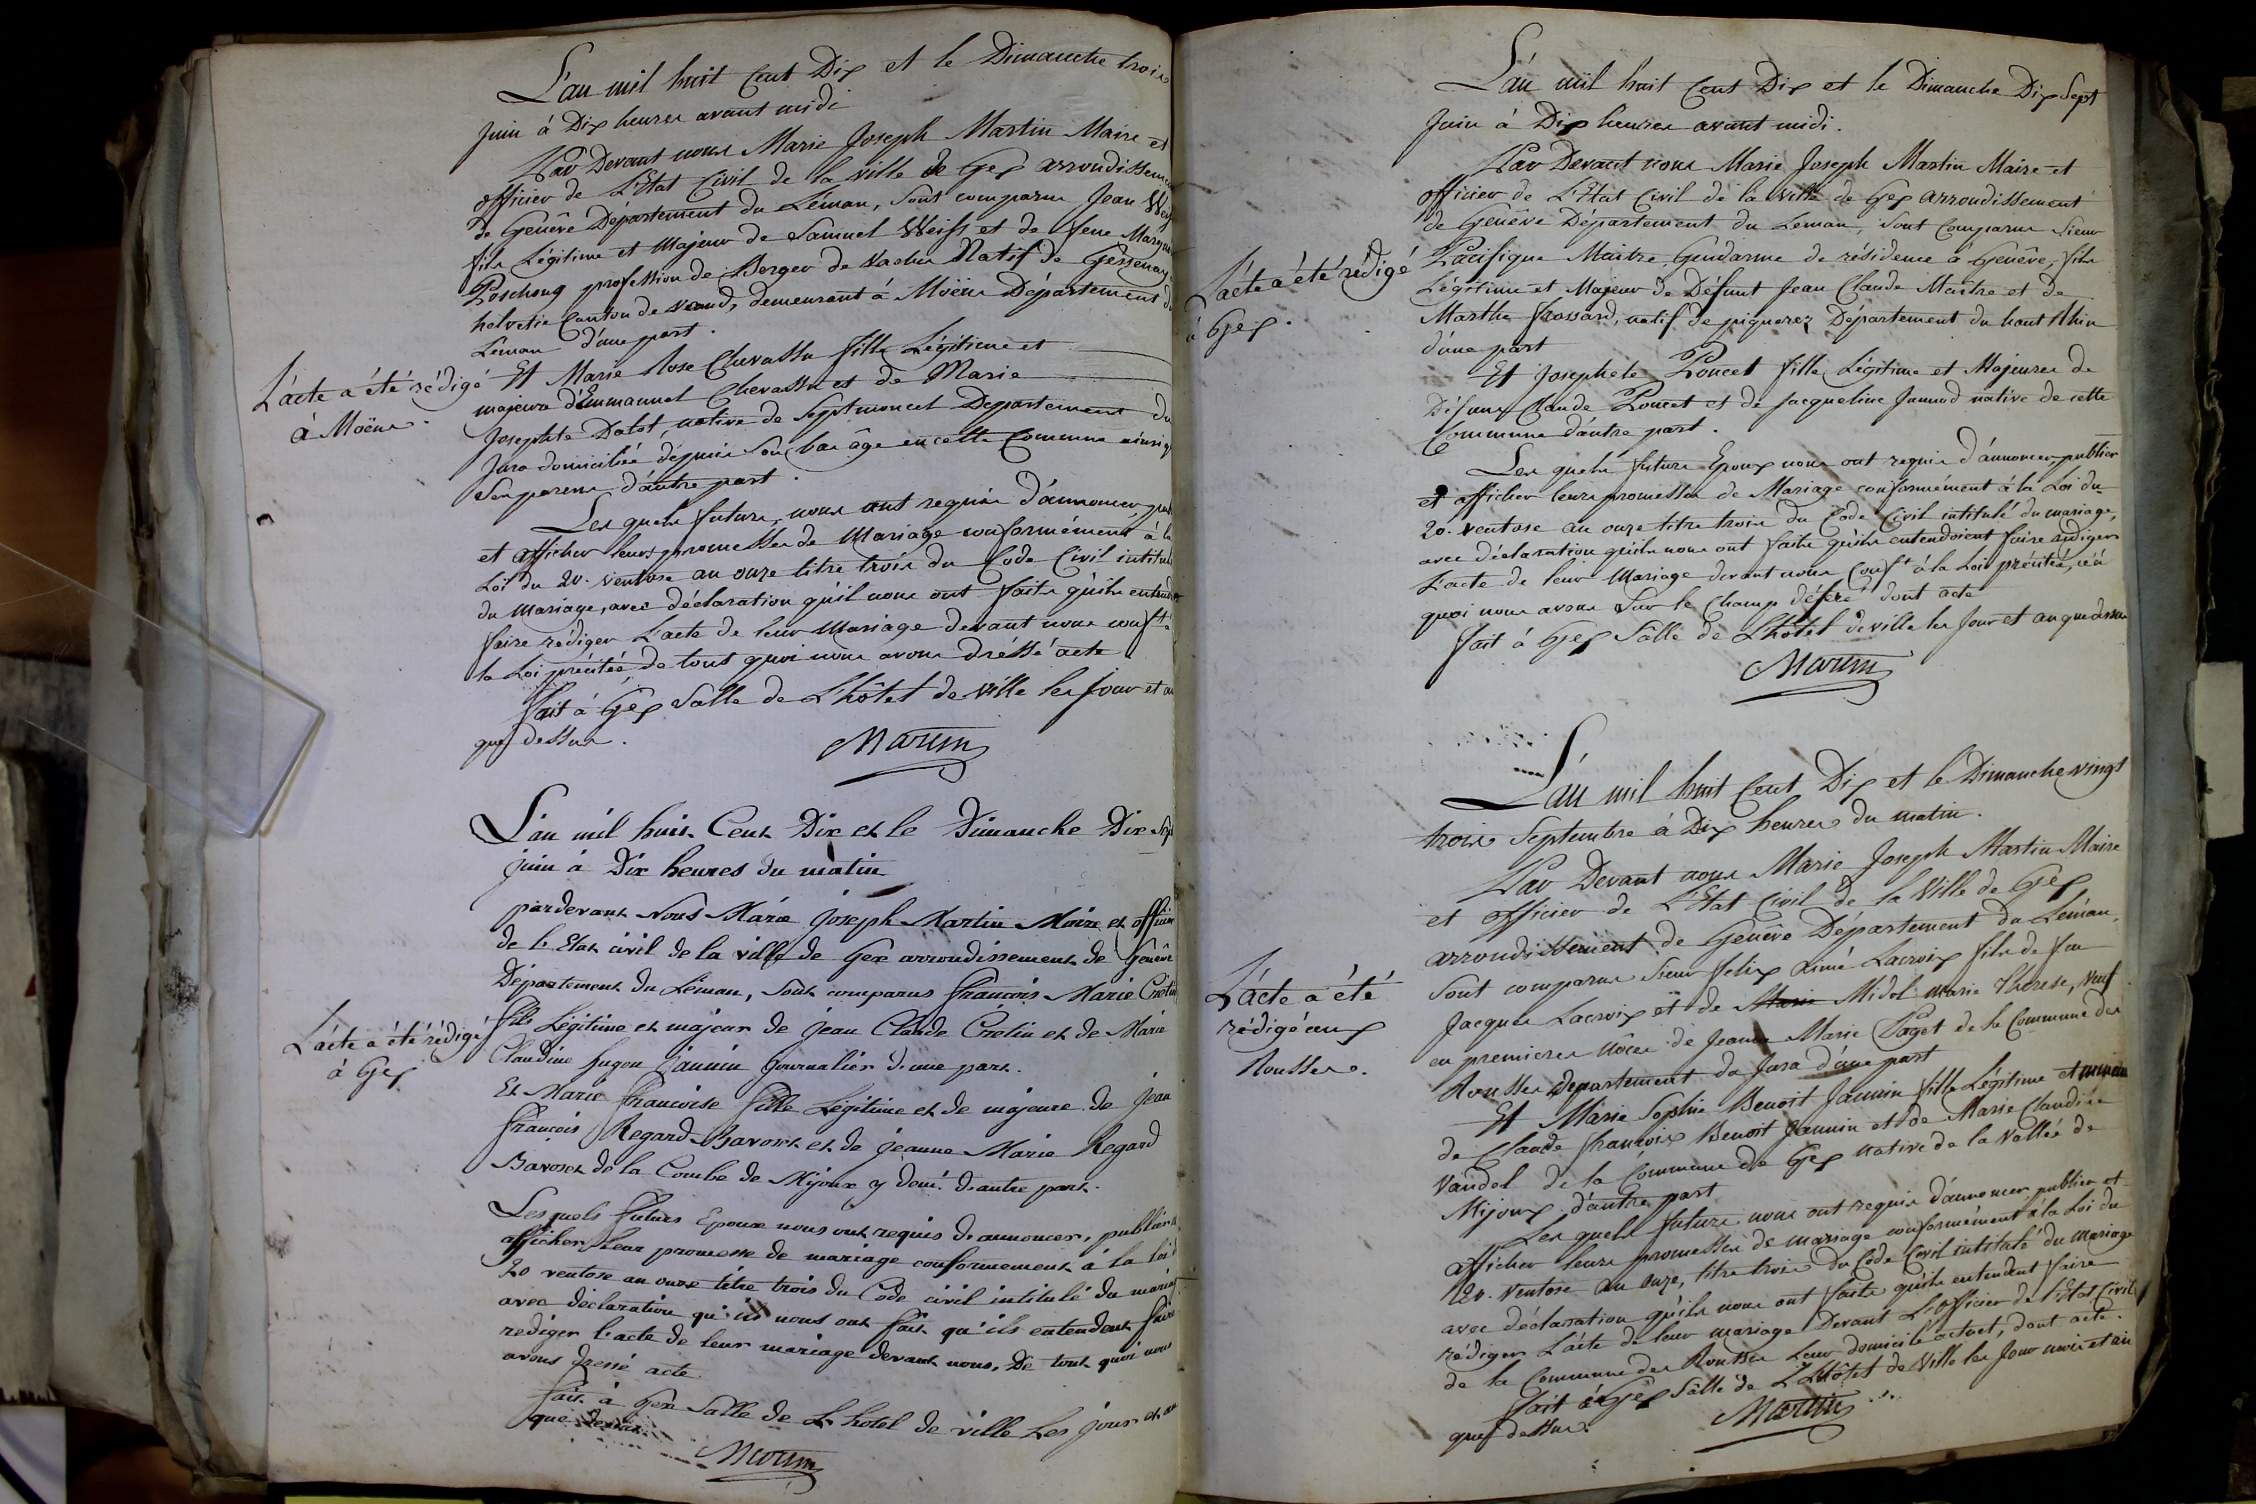 L'an mil huit Cent Dix et le Dimanche trois
Juin à Dix heures avant midi
Par Devant nous Marie Joseph Martin Maire et
officier de L'Etat Civil de la ville de Gex arrondissem
de Genêve Département du Léman, Sont comparus Jean Weiss
fils Légitime et Majeur de Samuel Weiss et de feue
Poschoug profession de Berger de Vaches Natif de Gessenay
helvetie Canton de Vaud, demeurant à Moëns Département du
Léman d'une part.
Et Marie Rose Chevassu fille Légitime et
majeure d'Emmanuel Chevassu et de Marie
Josephte Dalot, native de Septmoncel Département du
Jura domiciliée depuis Son bas âge en cette Commune ainsi q
Ses parens d'autre part.
Les quels futurs, nous ont requis d'annoncer, pub
et afficher leurs promesses de Mariage conformément à la
Loi du 20. ventose an onze titre trois du Code Civil intitulé
du Mariage, avec déclaration qu'il nous ont faite qu'ils entend
faire rédiger L'acte de leur Mariage devant nous conft. à
la Loi précitée, de tout quoi nous avons dréssé acte
Fait à Gex Salle de L'hôtel de Ville les Jour et an
que dessus.
Martin
L'acte a été rédigé
à Moëns.
L'an mil huit Cent Dix et le Dimanche Dix Sept
juin à Dix heures du matin
pardevant Nous Marie Joseph Martin Maire et officier
de L'Etat civil de la ville de Gex arrondissement de Genêve
Département du Léman, Sont comparus François Marie Cretin
fils Légitime et majeur de Jean Claude Cretin et de Marie
Claudine hugon Jannin Journalier d'une part.
Et Marie françoise fille Légitime et de majeure de Jean
François Regard-Bavoset et de Jeanne Marie Regard
Bavoset de la Combe de Mijoux y demt. d'autre part.
Les quels futurs Epoux nous ont requis d'annoncer, publier et
afficher leur promesse de mariage conformement à la loi
20 ventose an onze titre trois du Code civil intitulé du mariage
avec déclaration qu'ils nous ont fait qu'ils entendent faire
rediger L'acte de leur mariage devant nous, De tout quoi nous
avons dressé acte.
fait à Gex Salle de L'hotel de ville Les jour et an
que dessus.
Martin
L'acte a été rédigé
à Gex
L'an mil huit Cent Dix et le Dimanche Dix Sept
Juin à Dix heures avant midi.
Par Devant nous Marie Joseph Martin Maire et
officier de L'Etat Civil de la ville de Gex arrondissement
de Genêve Département du Léman, Sont Comparus Sieur
Pacifique Maitre, Gendarme de résidence à Genêve, fils
Légitime et Majeur de Défunt Jean Claude Maitre et de
Marthe frossard, natif de piquerez Département du haut Rhin
d'une part
Et Josephete Poncet fille Légitime et Majeure de
Défunt Claude Poncet et de Jacqueline Jaunod native de cette
Commune d'autre part.
Les quels futurs Epoux nous ont requis d'annoncer, publier
et afficher leurs promesses de Mariage conformément à la Loi du
20. ventose an onze titre trois du Code Civil intitulé du mariage,
avec déclaration qu'ils nous ont faite qu'ils entendoient faire rédiger
L'acte de leur Mariage devant nous conft. à la Loi précitée, à
quoi nous avons Sur le Champ déferé dont acte
fait à Gex Salle de L'hôtel de ville les Jour et an que dessus
Martin
L'acte a été rédigé
à Gex.
L'an mil huit Cent Dix et le Dimanche vingt
trois Septembre à Dix heures du matin.
Par Devant nous Marie Joseph Martin Maire
et officier de L'Etat Civil de la Ville de Gex,
arrondissement de Genêve Département du Léman,
Sont comparus Sieur Felix aimé Lacroix fils de feu
Jacques Lacroix et de Marie Midol marie Thérese, Veuf
en premieres nôces de Jeanne Marie Paget de la Commune des
Rousses Département du Jura d'une part
Et Marie Sophie Benoit Jannin fille Légitime et mineure
de Claude françois Benoit Jannin et de Marie Claudine
Vandel de la Commune de Gex native de la Vallée de
Mijoux d'autre part
Les quels futurs nous ont requis d'annoncer publier et
afficher leurs promesses de mariage conformément à la Loi du
20. Ventose an onze, titre trois du Code Civil intitulé du mariage
avec déclaration qu'ils nous ont faite qu'ils entendent faire
rédiger L'acte de leur mariage Devant L'officier de l'Etat Civil
de la Commune des Rousses Leur domicile actuel, dont acte.
Fait à Gex Salle de L'Hôtel de Ville les Jour mois et an
que dessus.
Martin
L'acte a été
rédigé aux
Rousses.